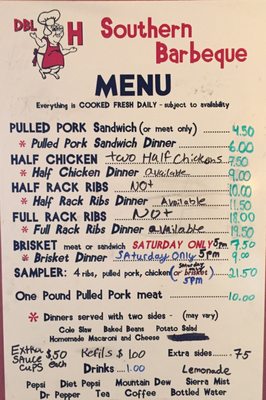 DBL H Southern
Barbeque
MENU
Everything is COOKED FRESH DAILY - subject to availability
PULLED PORK Sandwich (or meat only) 4.50
* Pulled Pork Sandwich Dinner 6.00
HALF CHICKEN two Half Chickens 7.50
* Half Chicken Dinner available 9.00
HALF RACK RIBS Not 10.00
* Half Rack Ribs Dinner Available 11.50
FULL RACK RIBS Not 18.00
* Full Rack Ribs Dinner available 19.50
BRISKET meat or sandwich SATURDAY ONLY 5pm 7.50
* Brisket Dinner Saturday Only 5pm 9.00
SAMPLER: 4 ribs, pulled pork, chicken (or brisket) Saturday 5pm 21.50
One Pound Pulled Pork meat 10.00
* Dinners served with two sides - (may vary)
Cole Slaw Baked Beans Potato Salad
Homemade Macaroni and Cheese Bottled Water
Extra Sauce Cups $.50 each Refills $1.00 Extra sides .75
Drinks 1.00 Lemonade
Pepsi Diet Pepsi Mountain Dew Sierra Mist
Dr Pepper Tea Coffee Bottled Water